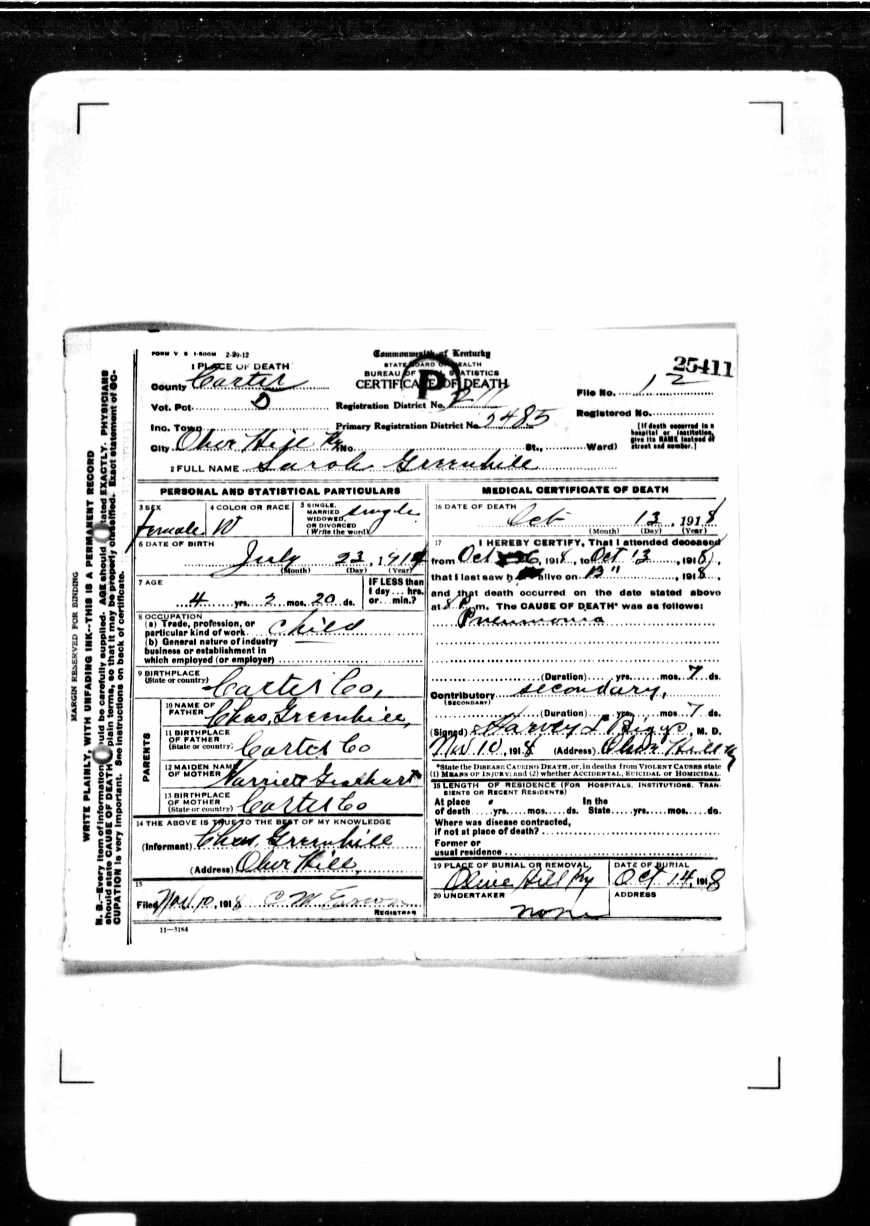 FORM V S 1-500M 2-20-12
Commonwealth of Kentucky
25411
1 PLACE OF DEATH
STATE BOARD OF HEALTH
BUREAU OF VITAL STATISTICS
CERTIFICATE OF DEATH
P
County Carter
File No. 12
Vot. Pct. D
Registration District No. 211
Registered No.
Inc. Town
Primary Registration District No. 2485
[If death occurred in a hospital or institution, give its NAME instead of street and number.]
City Olive Hill Ky No. St., Ward)
2 FULL NAME Sarah Greenhill
PERSONAL AND STATISTICAL PARTICULARS
3 SEX
female
4 COLOR OR RACE
W
5 SINGLE, MARRIED WIDOWED, OR DIVORCED (Write the word)
single
6 DATE OF BIRTH
July 23, 1914
(Month) (Day) (Year)
7 AGE
4 yrs. 2 mos. 20 ds.
IF LESS than 1 day... hrs. or... min.?
8 OCCUPATION
(a) Trade, profession, or particular kind of work. child
(b) General nature of industry business or establishment in which employed (or employer)
9 BIRTHPLACE
(State or country)
Carter Co,
PARENTS
10 NAME OF FATHER
Chas, Greenhill,
11 BIRTHPLACE OF FATHER
(State or country)
Carter Co
12 MAIDEN NAME OF MOTHER
Harriet Gearhart
13 BIRTHPLACE OF MOTHER
(State or country)
Carter Co
14 THE ABOVE IS TRUE TO THE BEST OF MY KNOWLEDGE
(Informant) Chas, Greenhill
(Address) Olive Hill,
15
Filed Nov 10, 1918 C M
REGISTRAR
11—3184
MEDICAL CERTIFICATE OF DEATH
16 DATE OF DEATH
Oct 13, 1918
(Month) (Day) (Year)
17 I HEREBY CERTIFY, That I attended deceased
from Oct 6, 1918, to Oct 13, 1918,
that I last saw h alive on 13", 1918,
and that death occurred on the date stated above
at 8 P m. The CAUSE OF DEATH* was as follows:
Pneumonia
(Duration) yrs. mos. 7 ds.
Contributory secondary,
(SECONDARY)
(Duration) yrs. mos. 7 ds.
(Signed) Harvey L Biggs, M. D.
Nov 10, 1918 (Address) Olive Hill Ky
*State the DISEASE CAUSING DEATH, or, in deaths from VIOLENT CAUSES state
(1) MEANS OF INJURY; and (2) whether ACCIDENTAL, SUICIDAL or HOMICIDAL.
18 LENGTH OF RESIDENCE (FOR HOSPITALS, INSTITUTIONS, TRANSIENTS OR RECENT RESIDENTS)
At place of death yrs. mos. ds. In the State yrs. mos. ds.
Where was disease contracted,
if not at place of death?
Former or
usual residence
19 PLACE OF BURIAL OR REMOVAL
Olive Hill Ky
DATE OF BURIAL
Oct 14, 1918
20 UNDERTAKER
none
ADDRESS
MARGIN RESERVED FOR BINDING
WRITE PLAINLY, WITH UNFADING INK—THIS IS A PERMANENT RECORD
N. B.—Every item of information should be carefully supplied. AGE should be stated EXACTLY. PHYSICIANS
should state CAUSE OF DEATH in plain terms, so that it may be properly classified. Exact statement of OC-
CUPATION is very important. See instructions on back of certificate.